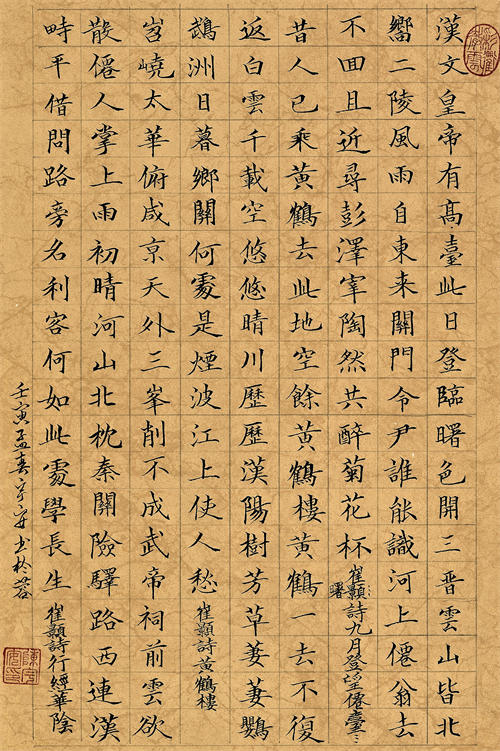 漢文皇帝有髙臺此日登臨曙色開三晉雲山皆北
嚮二陵風雨自東來關門令尹誰能識河上僊翁去
不囬且近尋彭澤宰陶然共醉菊花杯崔顥曙詩九月登望僊臺
昔人已乘黃鶴去此地空餘黃鶴樓黃鶴一去不復
返白雲千載空悠悠晴川歷歷漢陽樹芳草萋萋鸚
鵡洲日暮鄉關何處是煙波江上使人愁崔顥詩黃鶴樓
岧嶢太華俯咸京天外三峯削不成武帝祠前雲欲
散僊人掌上雨初晴河山北枕秦關險驛路西連漢
畤平借問路旁名利客何如此處學長生崔顥詩行經華陰
壬寅孟春宇安书於蓉